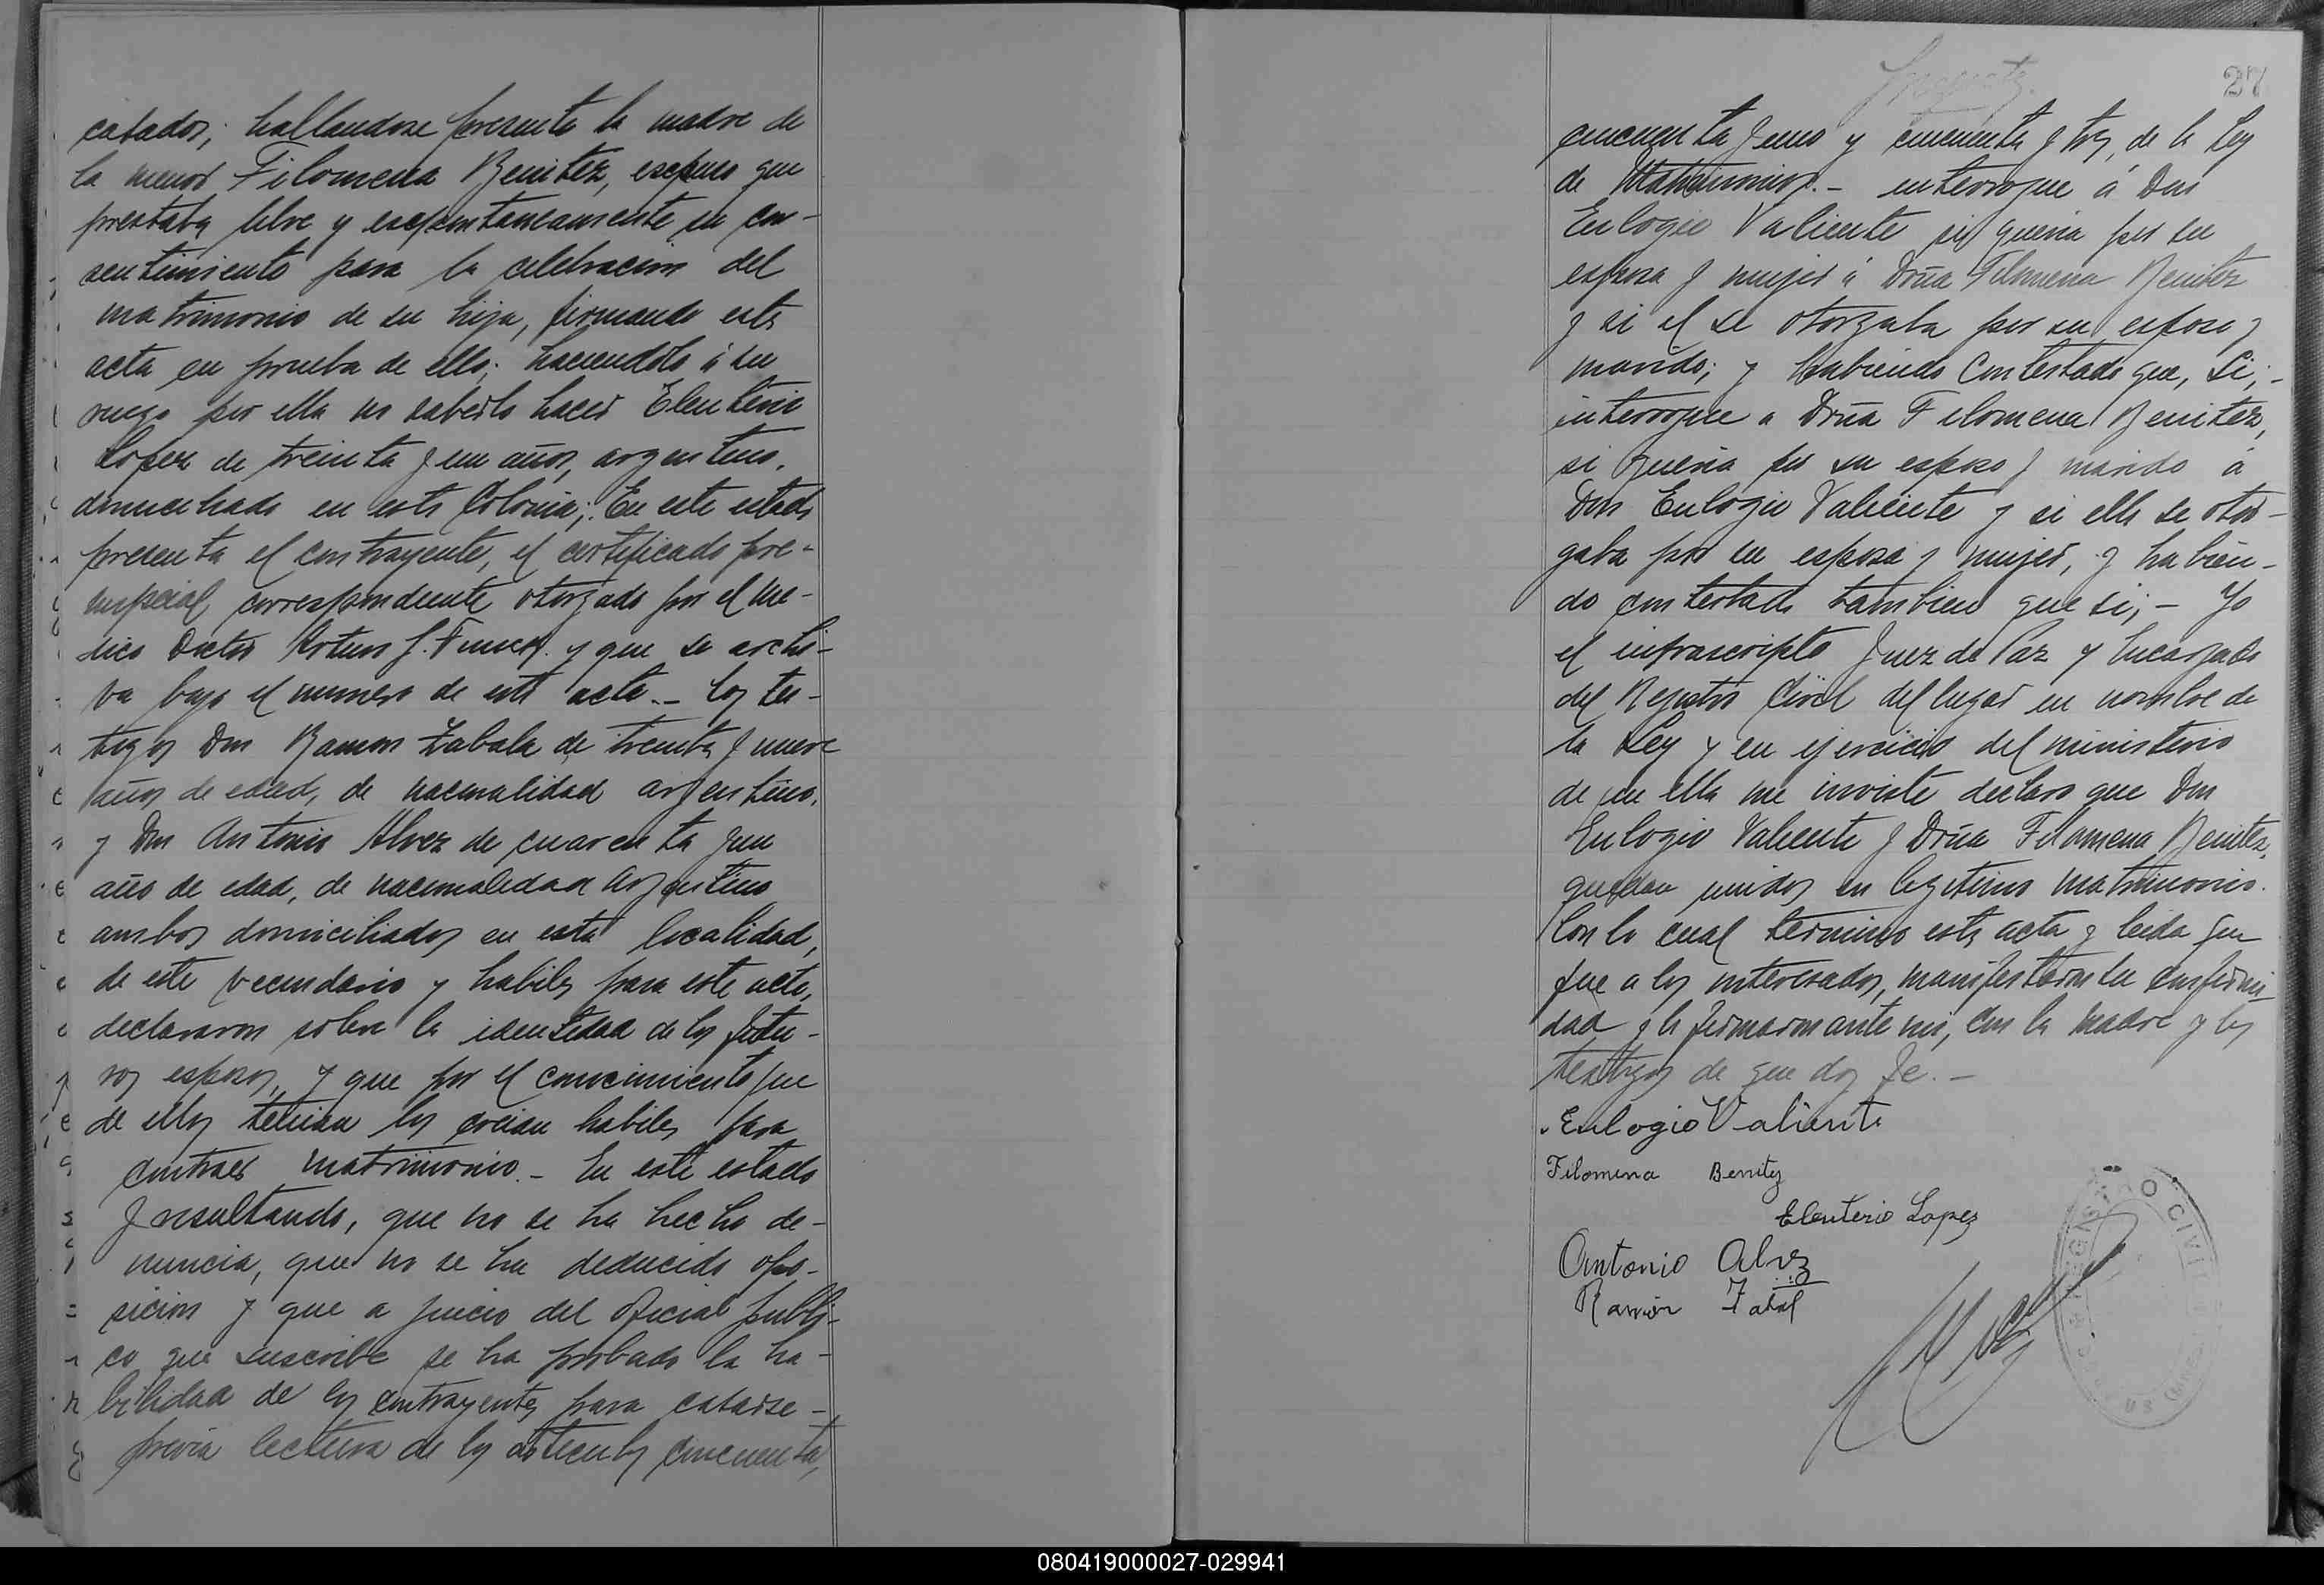 casados; hallandose presente la madre de
la menor Filomena Benitez, expuso que
prestaba libre y espontaneamente su con-
sentimiento para la celebracion del
matrimonio de su hija, firmando esta
acta en prueba de ello; haciendolo á su
ruego por ella no saberlo hacer Eleuterio
Lopez de treinta y un años, argentino,
domiciliado en esta Colonia; En este estado
presenta el contrayente, el certificado pre-
nupcial correspondiente otorgado por el me-
dico Doctor Arturo J. y que se archi-
va bajo el numero de esta acta.- Los tes-
tigos Don Ramon Zabala de treinta y nueve
años de edad, de nacionalidad argentino,
y Don Antonio Alvez de cuarenta y un
años de edad, de nacionalidad argentino
ambos domiciliados en esta localidad,
de este vecindario y habiles para este acto,
declararon sobre la identidad de los futu-
ros esposos, y que por el conocimiento que
de ellos tenian los creian habiles para
contraer matrimonio.- En este estado
y resultando, que no se ha hecho de-
nuncia, que no se ha deducido opo-
sicion y que a juicio del oficial publi-
co que suscribe se ha probado la ha-
bilidad de los contrayentes para casarse-
previa lectura de los articulos cincuenta,
27
cincuenta y uno y cincuenta y tres, de la Ley
de Matrimonio.- interrogue á Don
Eulogio Valiente si queria por su
esposa y mujer á Doña Filomena Benitez
y si el se otorgaba por su esposo y
marido; y habiendo contestado que, Si;-
interrogue a Doña Filomena Benitez,
si queria por su esposo y marido á
Don Eulogio Valiente y si ella se otor-
gaba por su esposa y mujer, y habien-
do contestado tambien que si;- Yo
el infrascripto Juez de Paz y Encargado
del Registro Civil del lugar en nombre de
la Ley y en ejercicio del ministerio
de que ella me inviste declaro que Don
Eulogio Valiente y Doña Filomena Benitez,
quedan unidos en legitimo matrimonio.
Con lo cual termino esta acta y leida que
fue a los interesados, manifestaron su conformi
dad y la firmaron ante mi, con la madre y los
testigos de que doy fe.-
Eulogio Valiente
Filomena Benitez
Eleuterio Lopez
Antonio Alvez
Ramón
REGISTRO CIVIL
080419000027-029941